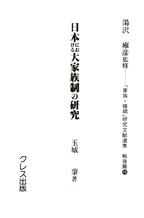 湯沢雍彦監修
『家族・婚姻』研究文献選集 戦後篇
日本における大家族制の研究
玉城 肇著
クレス出版